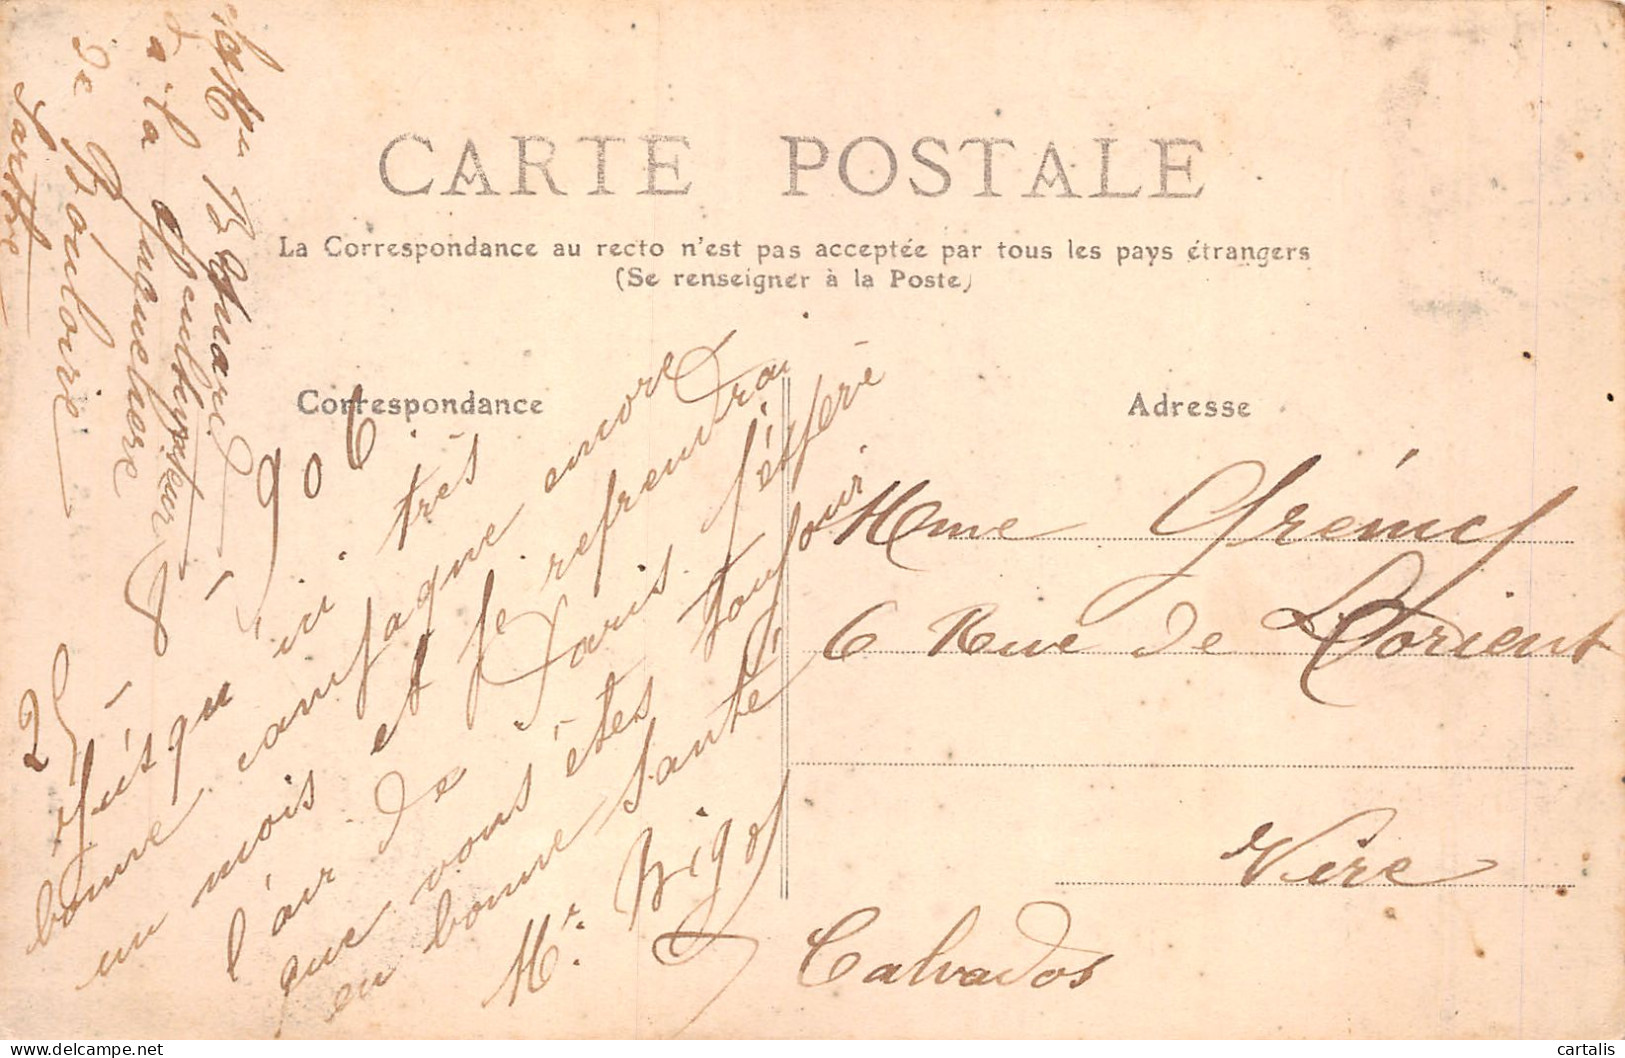 CARTE POSTALE
La Correspondance au recto n'est pas acceptée par tous les pays étrangers
(Se renseigner à la Poste)
Correspondance
Adresse
à la
de Bouloire
Sarthe
25 - - 906.
Jusqu'ici très
bonne campagne encore
un mois et je reprendrai
l'air de Paris j'espère
que vous êtes toujours
en bonne santé
Mr. Bigot
Mme Grémy
6 Rue de Lorient
Vire
Calvados
cartalis